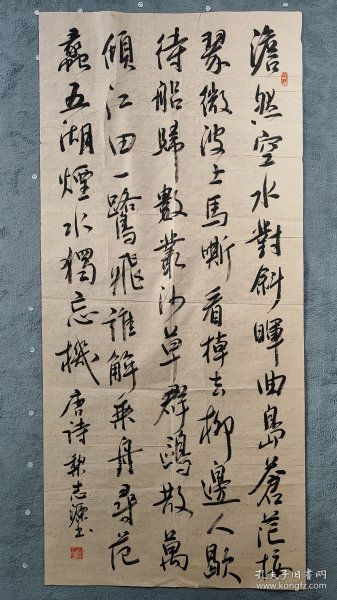 澹然空水對斜暉曲島蒼茫接
翠微波上馬嘶看棹去柳邊人歇
待船歸數叢沙草群鷗散萬
頃江田一鷺飛誰解乘舟尋范
蠡五湖煙水獨忘機 唐詩 志源書
孔夫子旧书网